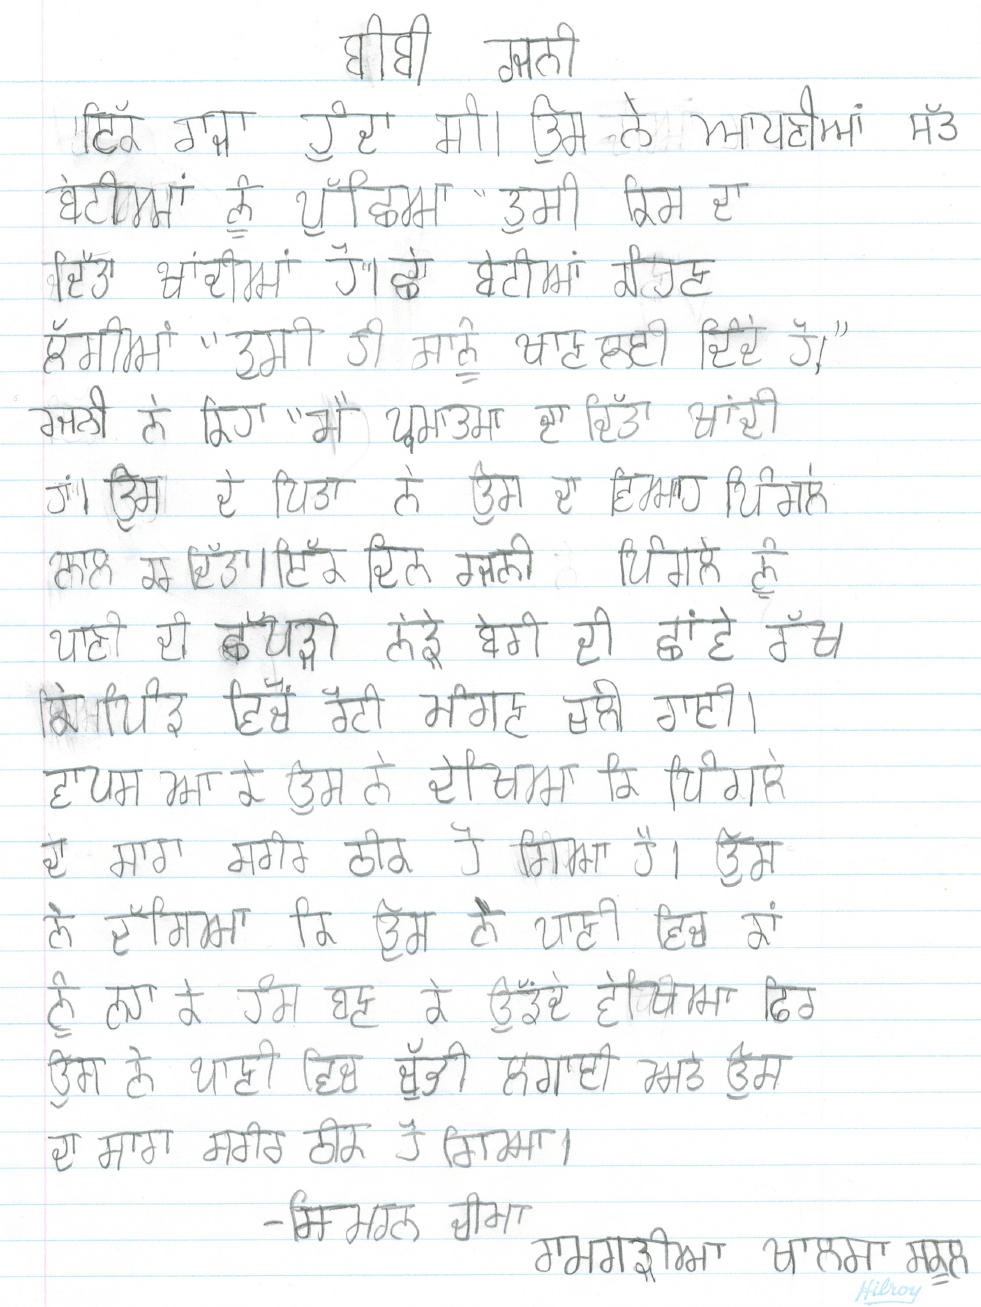 ਬੀਬੀ ਰਜਨੀ
ਇੱਕ ਰਾਜਾ ਹੁੰਦਾ ਸੀ। ਉਸ ਨੇ ਆਪਣੀਆਂ ਸੱਤ
ਬੇਟੀਆਂ ਨੂੰ ਪੁੱਛਿਆ "ਤੁਸੀ ਕਿਸ ਦਾ
ਦਿੱਤਾ ਖਾਂਦੀਆਂ ਹੈ"। ਛੇ ਬੇਟੀਆਂ ਕਹਿਣ
ਲੱਗੀਆਂ "ਤੁਸੀ ਹੀ ਸਾਨੂੰ ਖਾਣ ਲਈ ਦਿੰਦੇ ਹੋ।"
ਰਜਨੀ ਨੇ ਕਿਹਾ "ਮੈਂ ਪ੍ਰਮਾਤਮਾ ਦਾ ਦਿੱਤਾ ਖਾਂਦੀ
ਹਾਂ"। ਉਸ ਦੇ ਪਿਤਾ ਨੇ ਉਸ ਦਾ ਵਿਆਹ ਪਿੰਗਲੇ
ਨਾਲ ਕਰ ਦਿੱਤਾ। ਇੱਕ ਦਿਨ ਰਜਨੀ ਪਿੰਗਲੇ ਨੂੰ
ਪਾਣੀ ਦੀ ਛੱਪੜੀ ਨੇੜੇ ਬੇਰੀ ਦੀ ਛਾਂਵੇ ਰੱਖ
ਕੇ ਪਿੰਡ ਵਿਚੋਂ ਰੋਟੀ ਮੰਗਣ ਚਲੀ ਗਈ।
ਵਾਪਸ ਆ ਕੇ ਉਸ ਨੇ ਦੇਖਿਆ ਕਿ ਪਿੰਗਲੇ
ਦਾ ਸਾਰਾ ਸਰੀਰ ਠੀਕ ਹੋ ਗਿਆ ਹੈ। ਉਸ
ਨੇ ਦੱਸਿਆ ਕਿ ਉਸ ਨੇ ਪਾਣੀ ਵਿਚ ਕਾਂ
ਨੂੰ ਨਹਾ ਕੇ ਹੰਸ ਬਣ ਕੇ ਉੱਡਦੇ ਵੇਖਿਆ ਫਿਰ
ਉਸ ਨੇ ਪਾਣੀ ਵਿਚ ਚੁੱਭੀ ਲਗਾਈ ਅਤੇ ਉਸ
ਦਾ ਸਾਰਾ ਸਰੀਰ ਠੀਕ ਹੋ ਗਿਆ।
- ਸਿਮਰਨ ਚੀਮਾ
ਰਾਮਗੜੀਆ ਖਾਲਸਾ ਸਕੂਲ
Hilroy